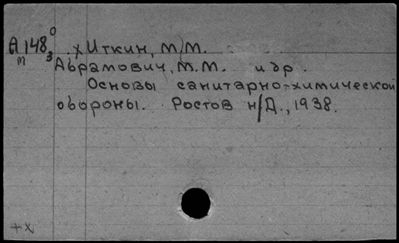 А 148 0
м 3
х Иткин, М.М.
Абрамович, М.М. и др.
Основы санитарно-химической
обороны. Ростов н/Д., 1938.
+х